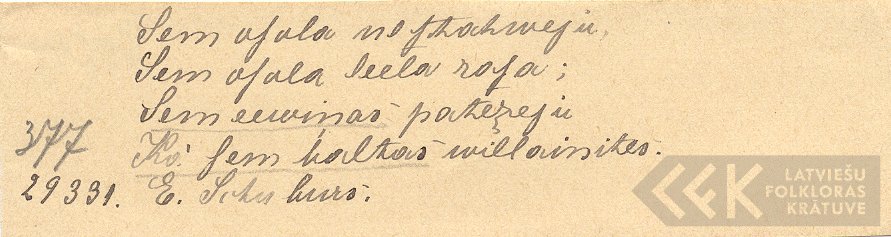 Sem osola nestahweju,
Sem osola leela rasa;
Sem eewinas patezeju
Kà sem baltas willainites.
377
29331. E. Schurs.
LATVIEŠU
FOLKLORAS
KRĀTUVE